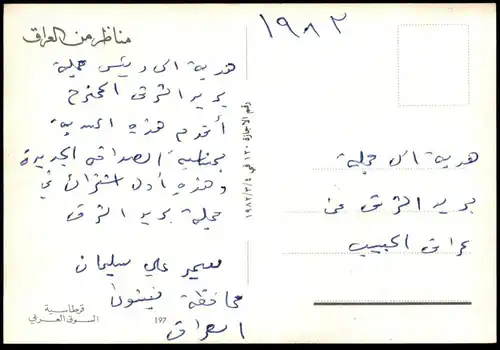 ١٩٨٢
مناظر من العراق
هدية الى رئيس مجلة
بريد الشرق المحترم
أقدم هذه الهدية
الصداقه الجديدة
وهذه أول اشتراك في
مجلة بريد الشرق
معمر علي سليمان
محافظة نينوى
العراق
رقم الاجازة ١٢٠ في ١٩٨٢/٢/٤
هدية الى مجلة
بريد الشرق من
عراق الحبيب
قرطاسية
السوق العربي
197